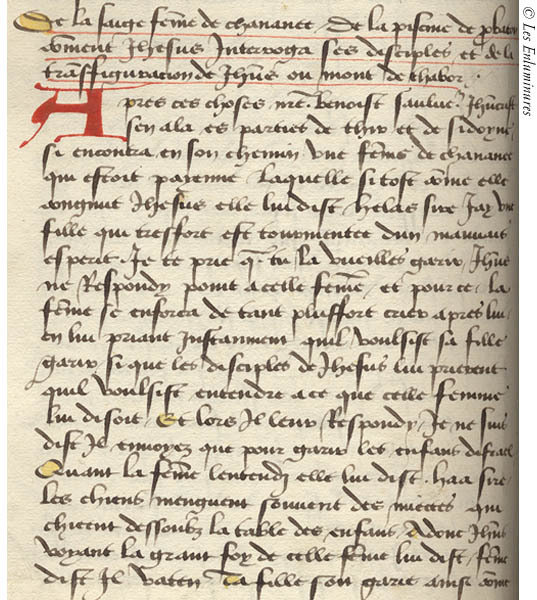 De la saige fe͞me de chananee . De la piscine de
co͞ment Jhesus Interroga ses disciples et de la
tra͞nsfiguracion de Jh͞us ou mont de thabor .
Apres ces choses n͞re benoist sauluer Jh͞ucrist
sen ala es parties de thir et de sidoyne
si encontra en son chemin vne fe͞me de chananee
qui estoit payenne . laquelle si tost co͞me elle
congnut Jhesus elle lui dist . helas sire Jay vne
fille qui tresfort est tourmentee dun mauuais
esperit . Je te prie q͞ tu la vueilles garir . Jh͞us
ne Respondy point a celle fe͞me . et pour ce . la
fe͞me se enforca de tant plusfort crier apres lui .
en lui priant Instamment quil voulsist sa fille
garir . si que les disciples de Jhesus lui prierent
quil voulsist entendre a ce que celle femme
lui disoit . Et lors Il leur Respondy . Je ne suis
dist Il . enuoyez que pour garir les enfans disrael
Quant la fe͞me lentendi elle lui dist . haa sire
les chiens menguent souuent des miectes qui
chieent dessoubz la table des enfans . Adonc Jh͞us
voyant la grant foy de celle fe͞me lui dist . fe͞me
dist Il . vaten . ta fille soit garie ainsi co͞me
© Les Enluminures